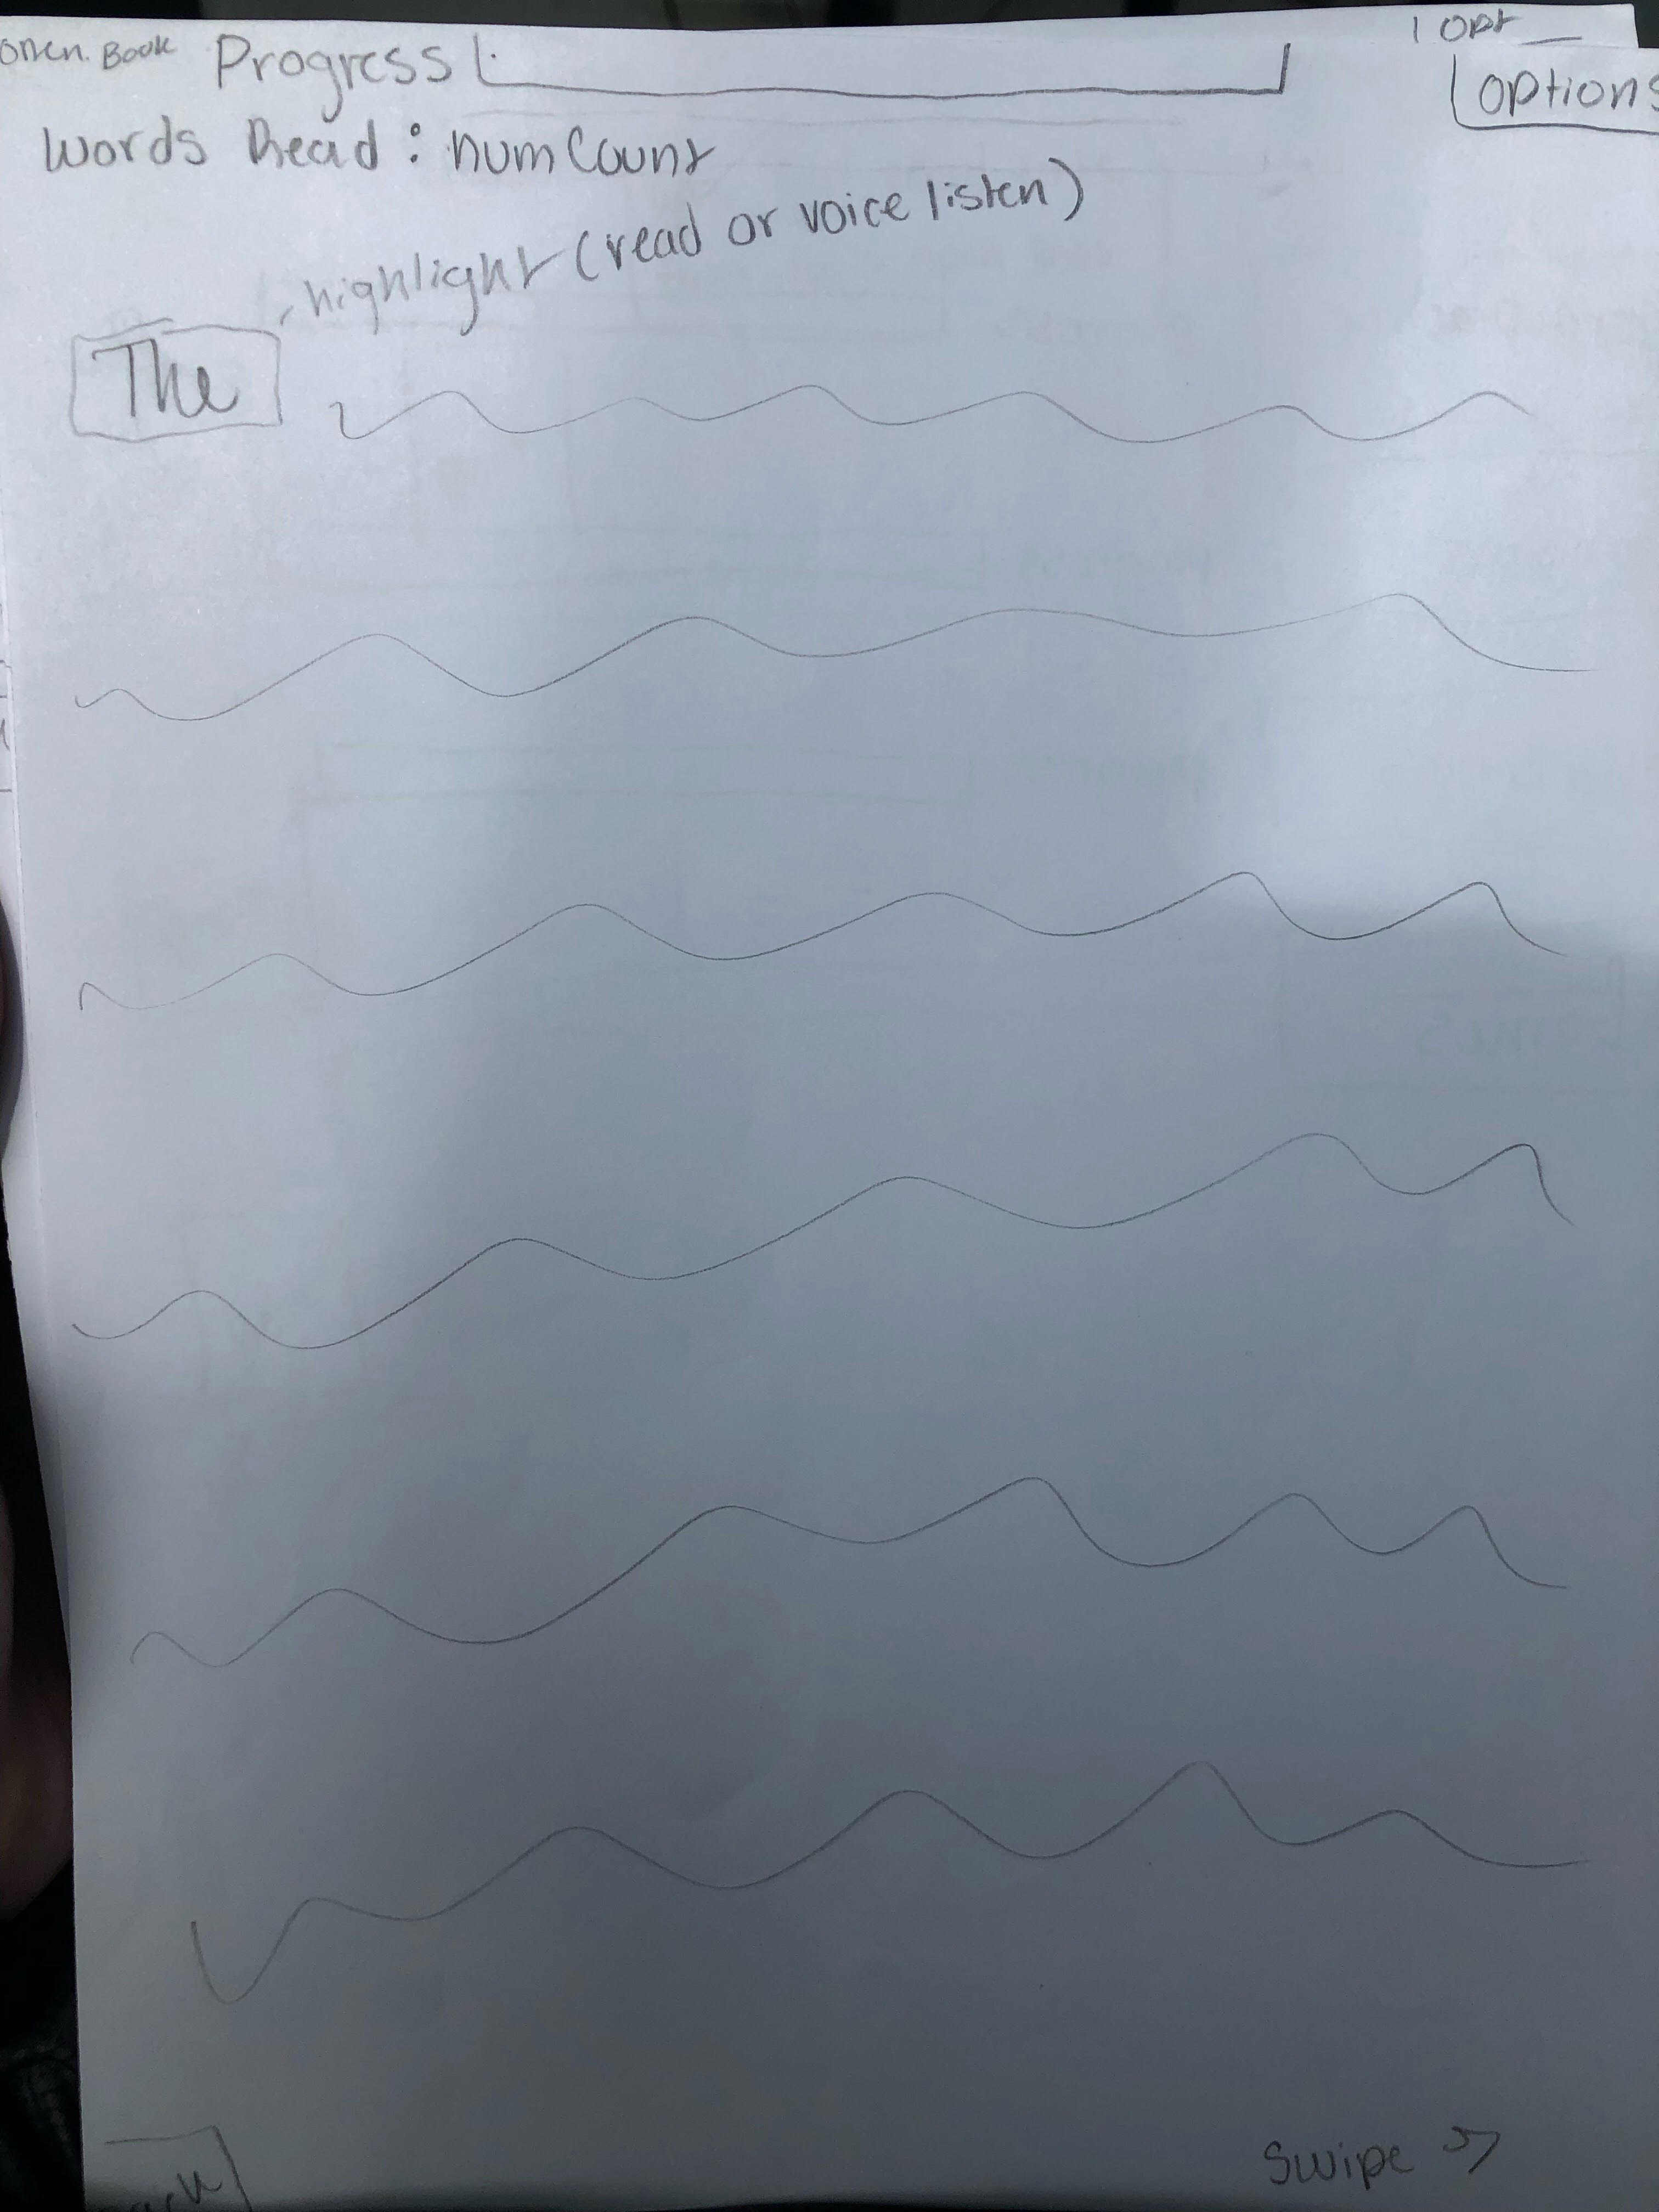 Open Book Progress
1 Opt
Options
Words Read: numCount
highlight (read or voice listen)
The
Swipe